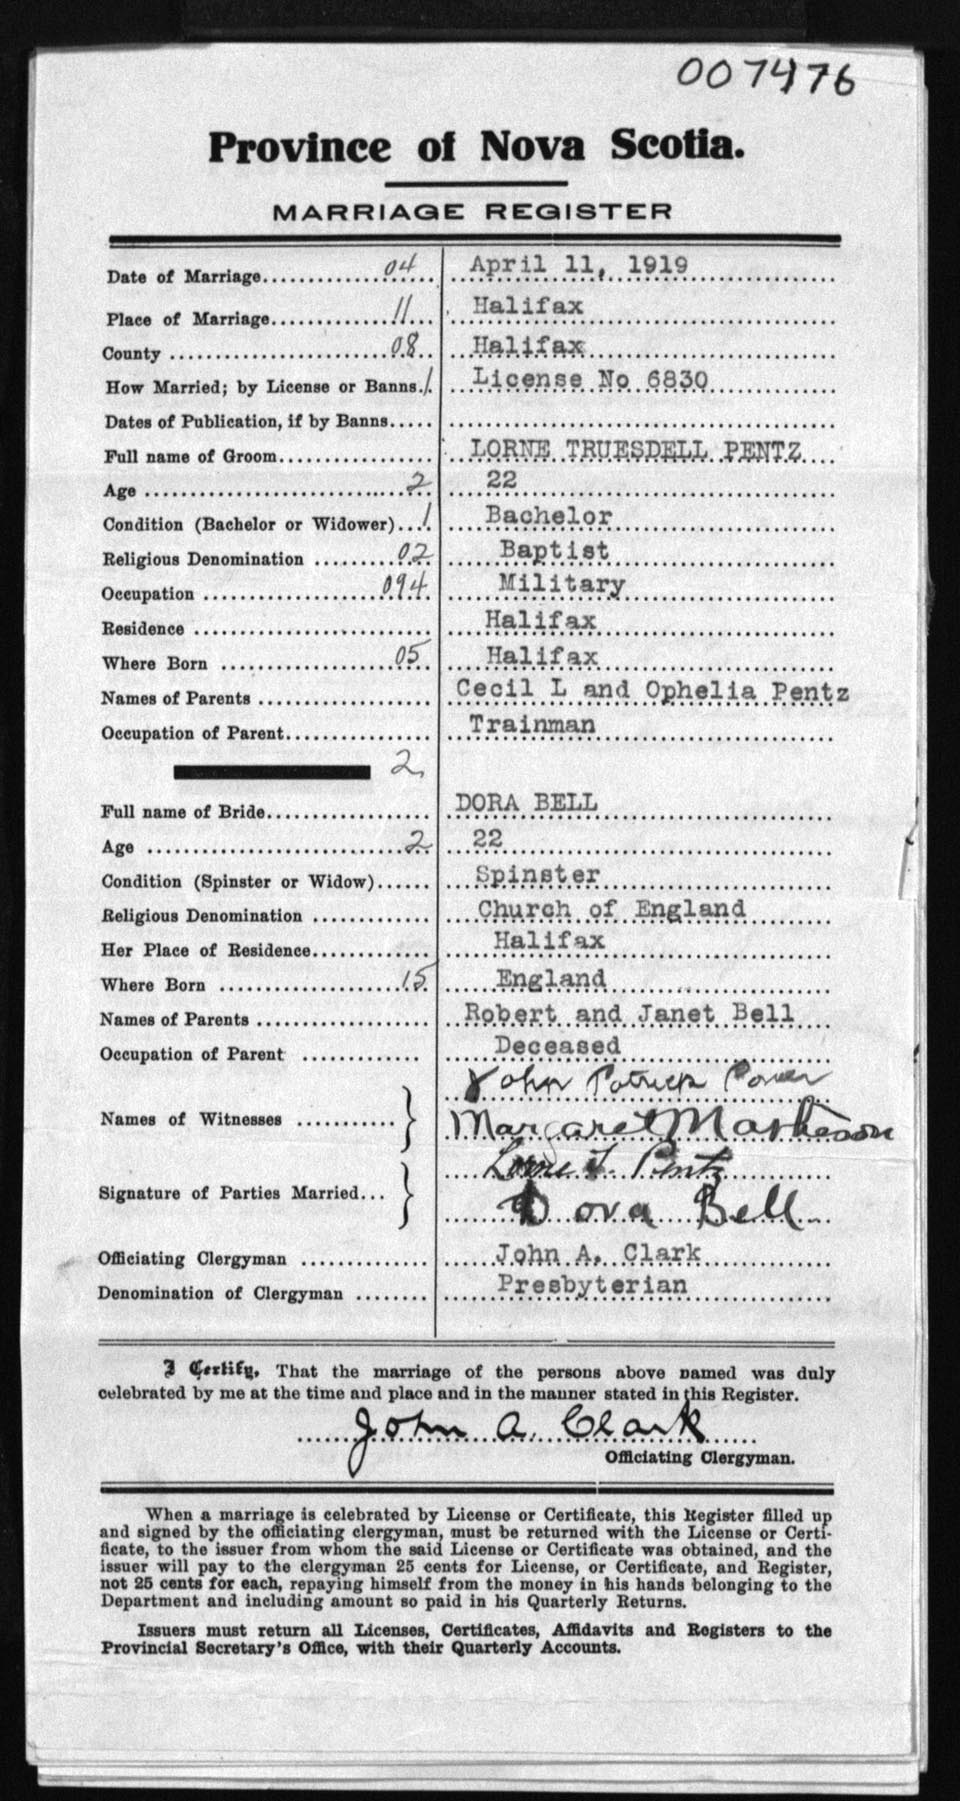 007476
Province of Nova Scotia.
MARRIAGE REGISTER
Date of Marriage 04 April 11, 1919
Place of Marriage 11 Halifax
County 08 Halifax
How Married; by License or Banns 1 License No 6830
Dates of Publication, if by Banns
Full name of Groom LORNE TRUESDELL PENTZ
Age 2 22
Condition (Bachelor or Widower) 1 Bachelor
Religious Denomination 02 Baptist
Occupation 094 Military
Residence Halifax
Where Born 05 Halifax
Names of Parents Cecil L and Ophelia Pentz
Occupation of Parent Trainman
2
Full name of Bride DORA BELL
Age 2 22
Condition (Spinster or Widow) Spinster
Religious Denomination Church of England
Her Place of Residence Halifax
Where Born 15 England
Names of Parents Robert and Janet Bell
Occupation of Parent Deceased
John Patrick Power
Names of Witnesses
Margaret Matheson
Lorne T. Pentz
Signature of Parties Married
Dora Bell
Officiating Clergyman John A. Clark
Denomination of Clergyman Presbyterian
I Certify, That the marriage of the persons above named was duly
celebrated by me at the time and place and in the manner stated in this Register.
John A. Clark
Officiating Clergyman.
When a marriage is celebrated by License or Certificate, this Register filled up
and signed by the officiating clergyman, must be returned with the License or Certi-
ficate, to the issuer from whom the said License or Certificate was obtained, and the
issuer will pay to the clergyman 25 cents for License, or Certificate, and Register,
not 25 cents for each, repaying himself from the money in his hands belonging to the
Department and including amount so paid in his Quarterly Returns.
Issuers must return all Licenses, Certificates, Affidavits and Registers to the
Provincial Secretary's Office, with their Quarterly Accounts.